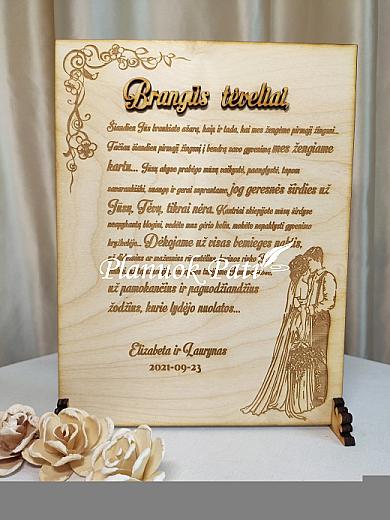 Brangūs tėveliai,
Šiandien Jūs braukiate ašarą, kaip ir tada, kai mes žengėme pirmąjį žingsnį...
Tačiau šiandien pirmąjį žingsnį į bendrą savo gyvenimą mes žengiame
kartu... Jūsų akyse prabėgo mūsų vaikystė, paauglystė, tapom
savarankiški, suaugę ir gerai suprantame, jog geresnės širdies už
Jūsų, Tėvų, tikrai nėra. Kantriai skiepijote mūsų širdyse
neapykantą blogiui, vedėte nus gėrio keliu, mokėte nepaklysti gyvenimo
kryžkelėje... Dėkojame už visas bemieges naktis,
Planuok Pati
už pamokančius ir paguodžiančius
žodžius, kurie lydėjo nuolatos...
Elizabeta ir Laurynas
2021-09-23